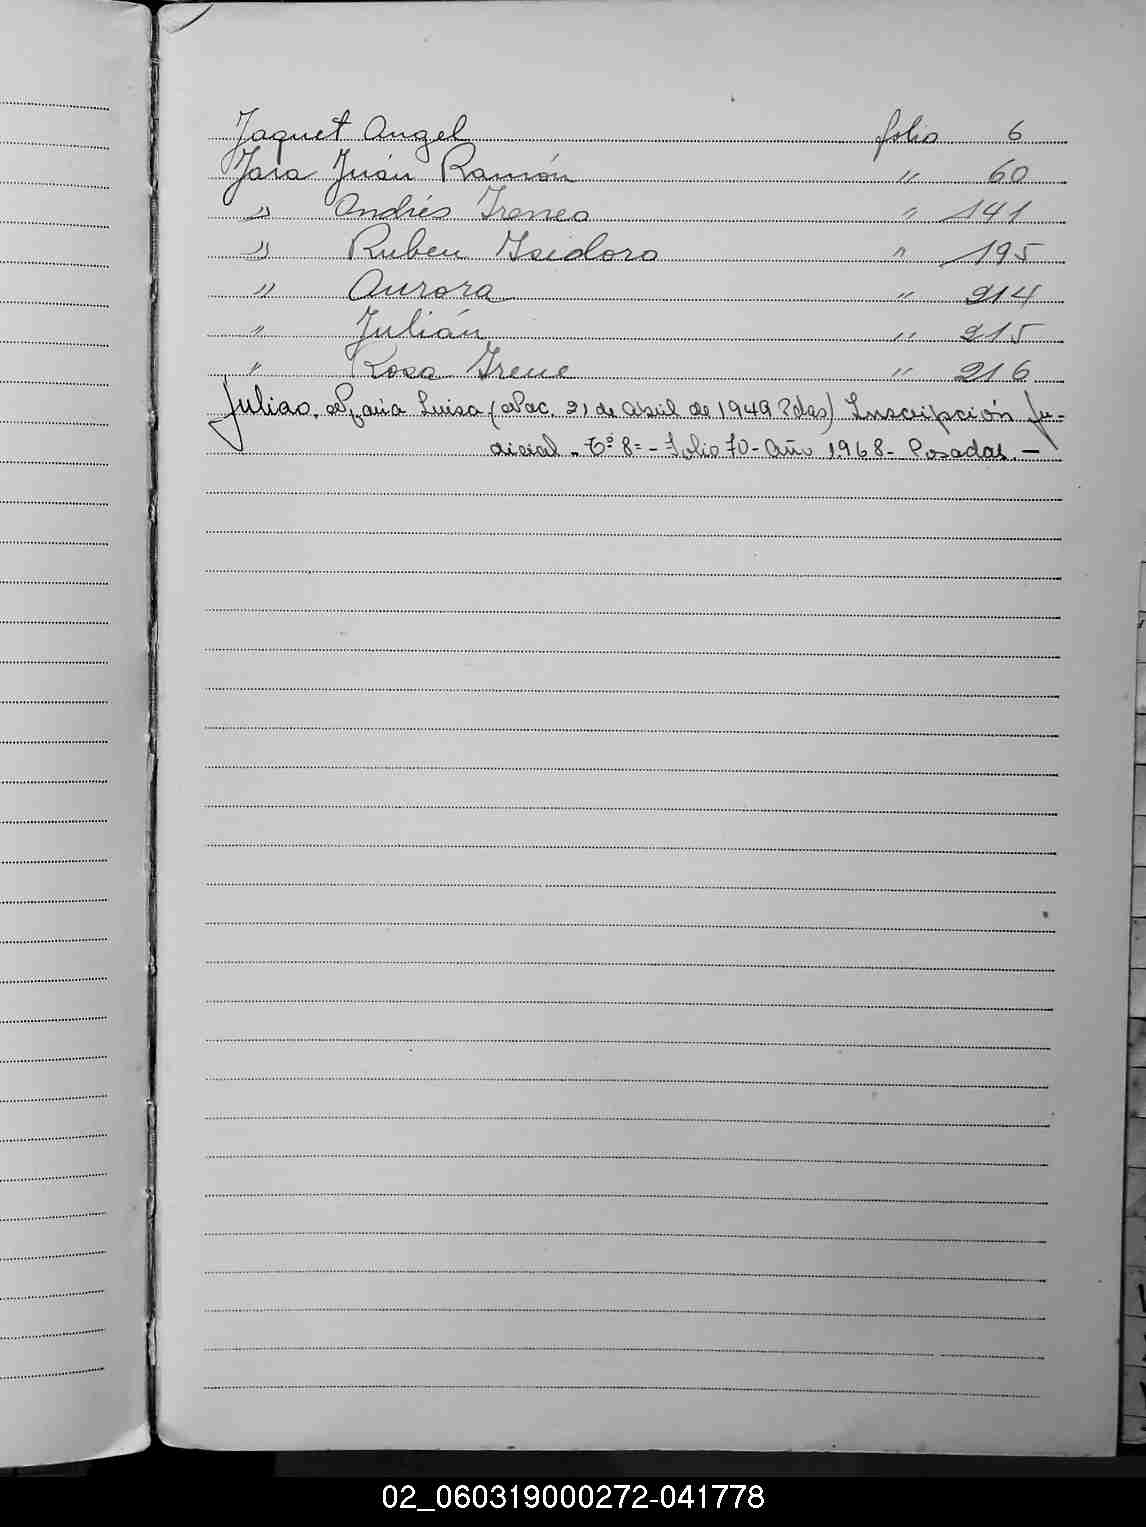 Jaquet Angel folio 6
Jara Juan Ramón " 60
" Andrés Ireneo " 141
" Ruben Isidoro " 195
" Aurora " 214
" Julián " 215
" Rosa Irene " 216
Juliao, María Luisa (Nac. 21 de abril de 1949 Pdas) Inscripción Ju-
dicial - Tº 8= - Folio 70 - Año 1968 - Posadas. -
02_060319000272-041778